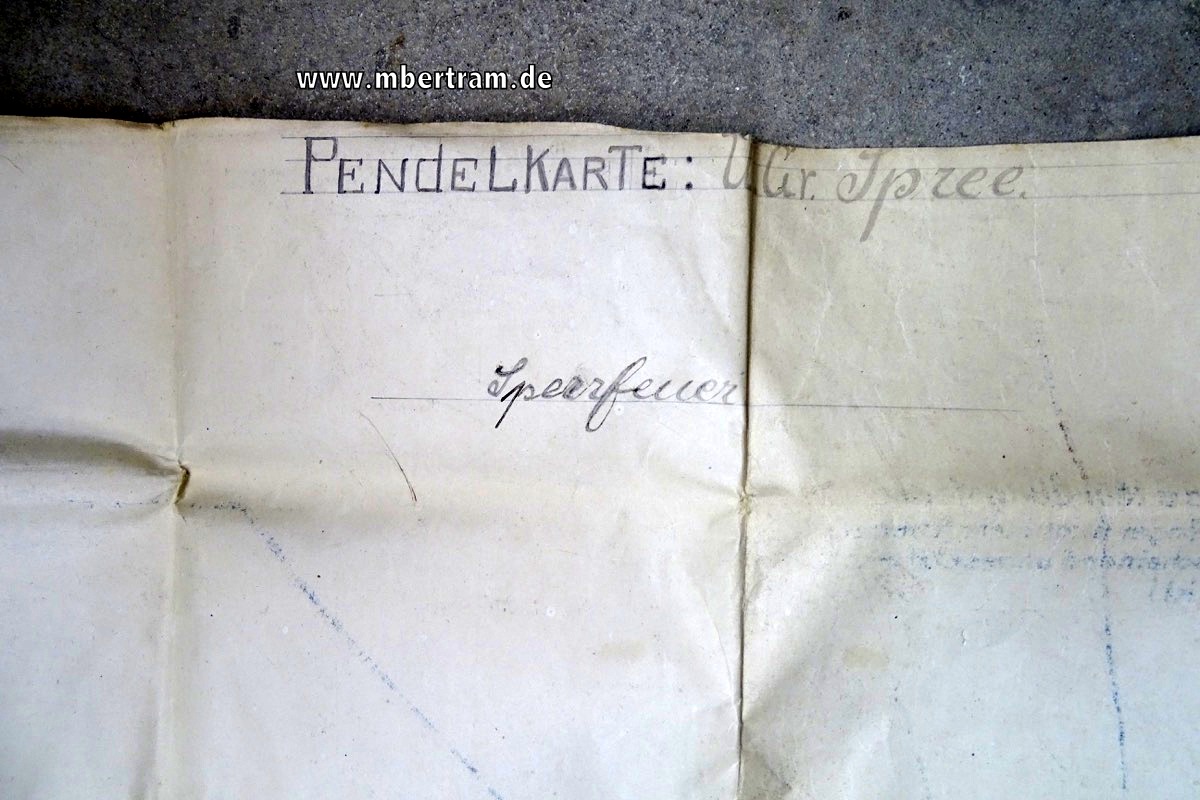 www.mbertram.de
PENDELKARTE: U.Gr. Spree.
Sperrfeuer